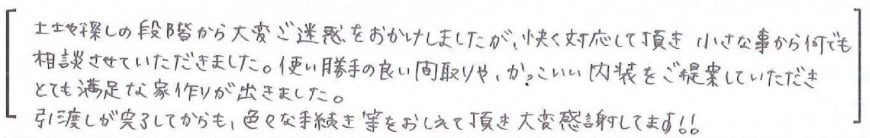 土地探しの段階から大変ご迷惑をおかけしましたが、快く対応して頂き 小さな事から何でも
相談させていただきました。使い勝手の良い間取りや、かっこいい内装をご提案していただき
とても満足な家作りが出きました。
引渡しが完了してからも、色々な手続き等をおしえて頂き大変感謝してます!!